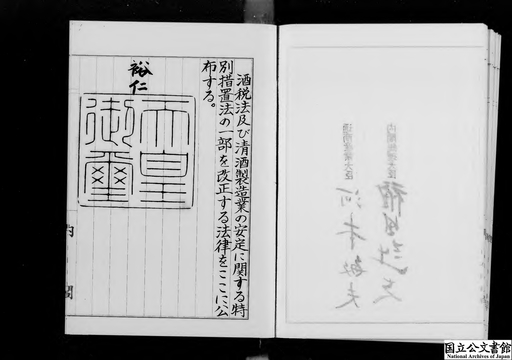 酒税法及び清酒製造業の安定に関する特
別措置法の一部を改正する法律をここに公
布する。
裕仁
天皇
御璽
内閣
国立公文書館
National Archives of Japan